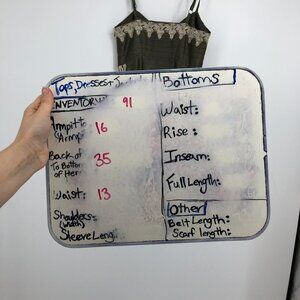 Tops, Dresses +
INVENTORY 91
Armpit to
Armp 16
Back of
To Bottom 35
of Hem
Waist: 13
Shoulders:
(width)
Sleeve Leng
Bottoms
Waist:
Rise:
Inseam:
Full Length:
Other
Belt Length:
Scarf length: